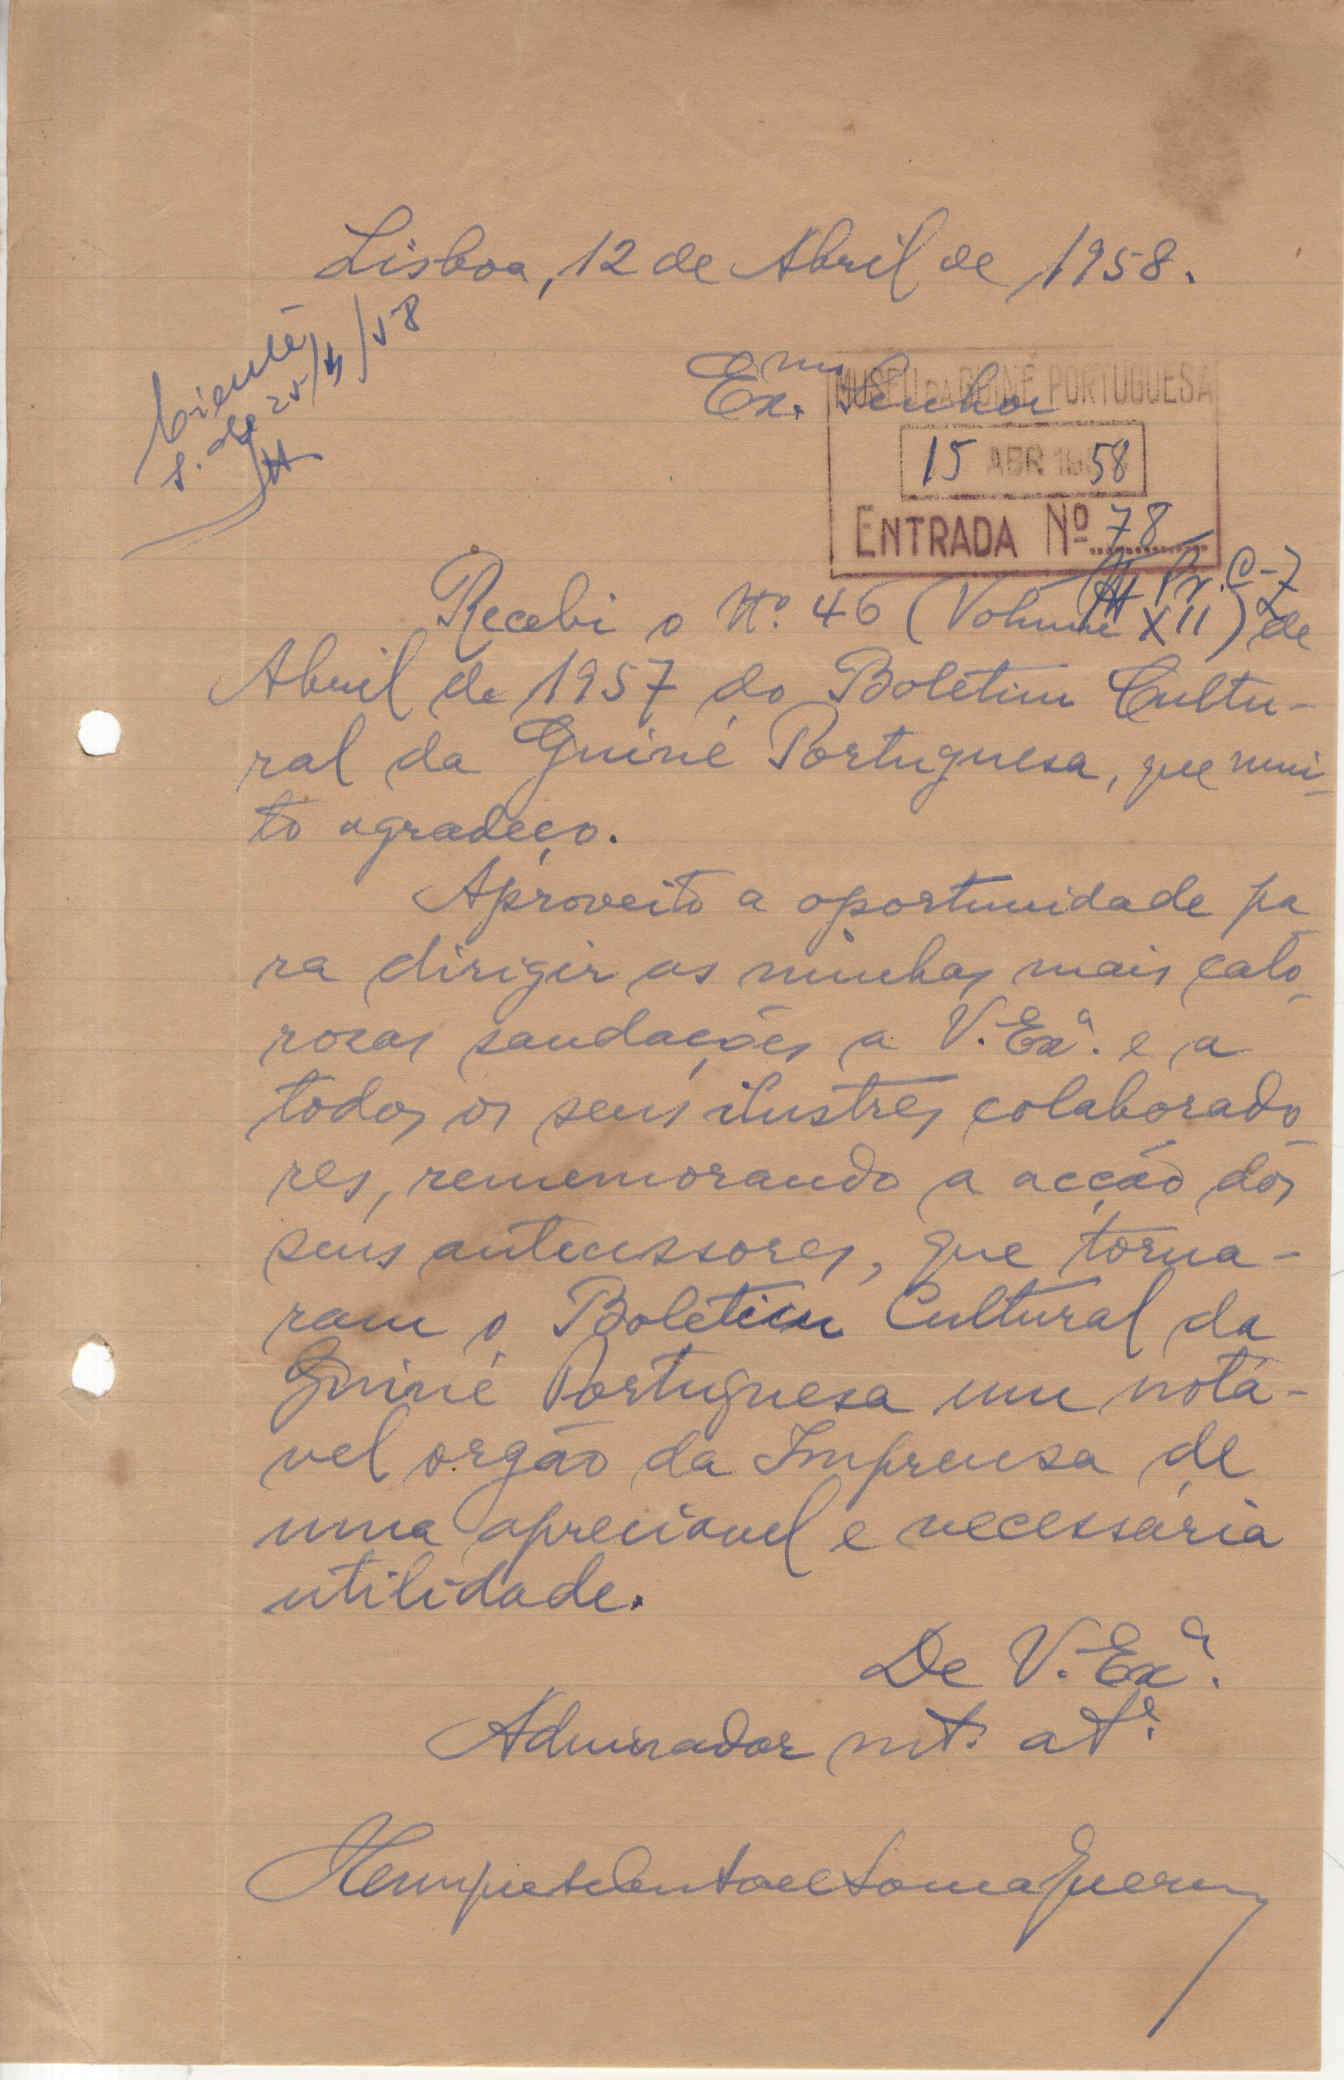 Lisboa, 12 de Abril de 1958.
Ciente
25/4/58
Ex.mo Senhor
MUSEU DA GUINÉ PORTUGUESA
15 ABR 1958
ENTRADA Nº 78
Pr. C-7
Recebi o Nº. 46 (Volume XII) de
Abril de 1957 do Boletim Cultu-
ral da Guiné Portuguesa, que mui-
to agradeço.
Aproveito a oportunidade pa
ra dirigir as minhas mais calo
rosas saudações a V. Exª. e a
todos os seus ilustres colaborado
res, rememorando a acção dos
seus antecessores, que torna-
ram o Boletim Cultural da
Guiné Portuguesa um notá-
vel orgão da Imprensa de
uma apreciavel e necessária
utilidade.
De V. Exª.
Admirador mt.º at.º